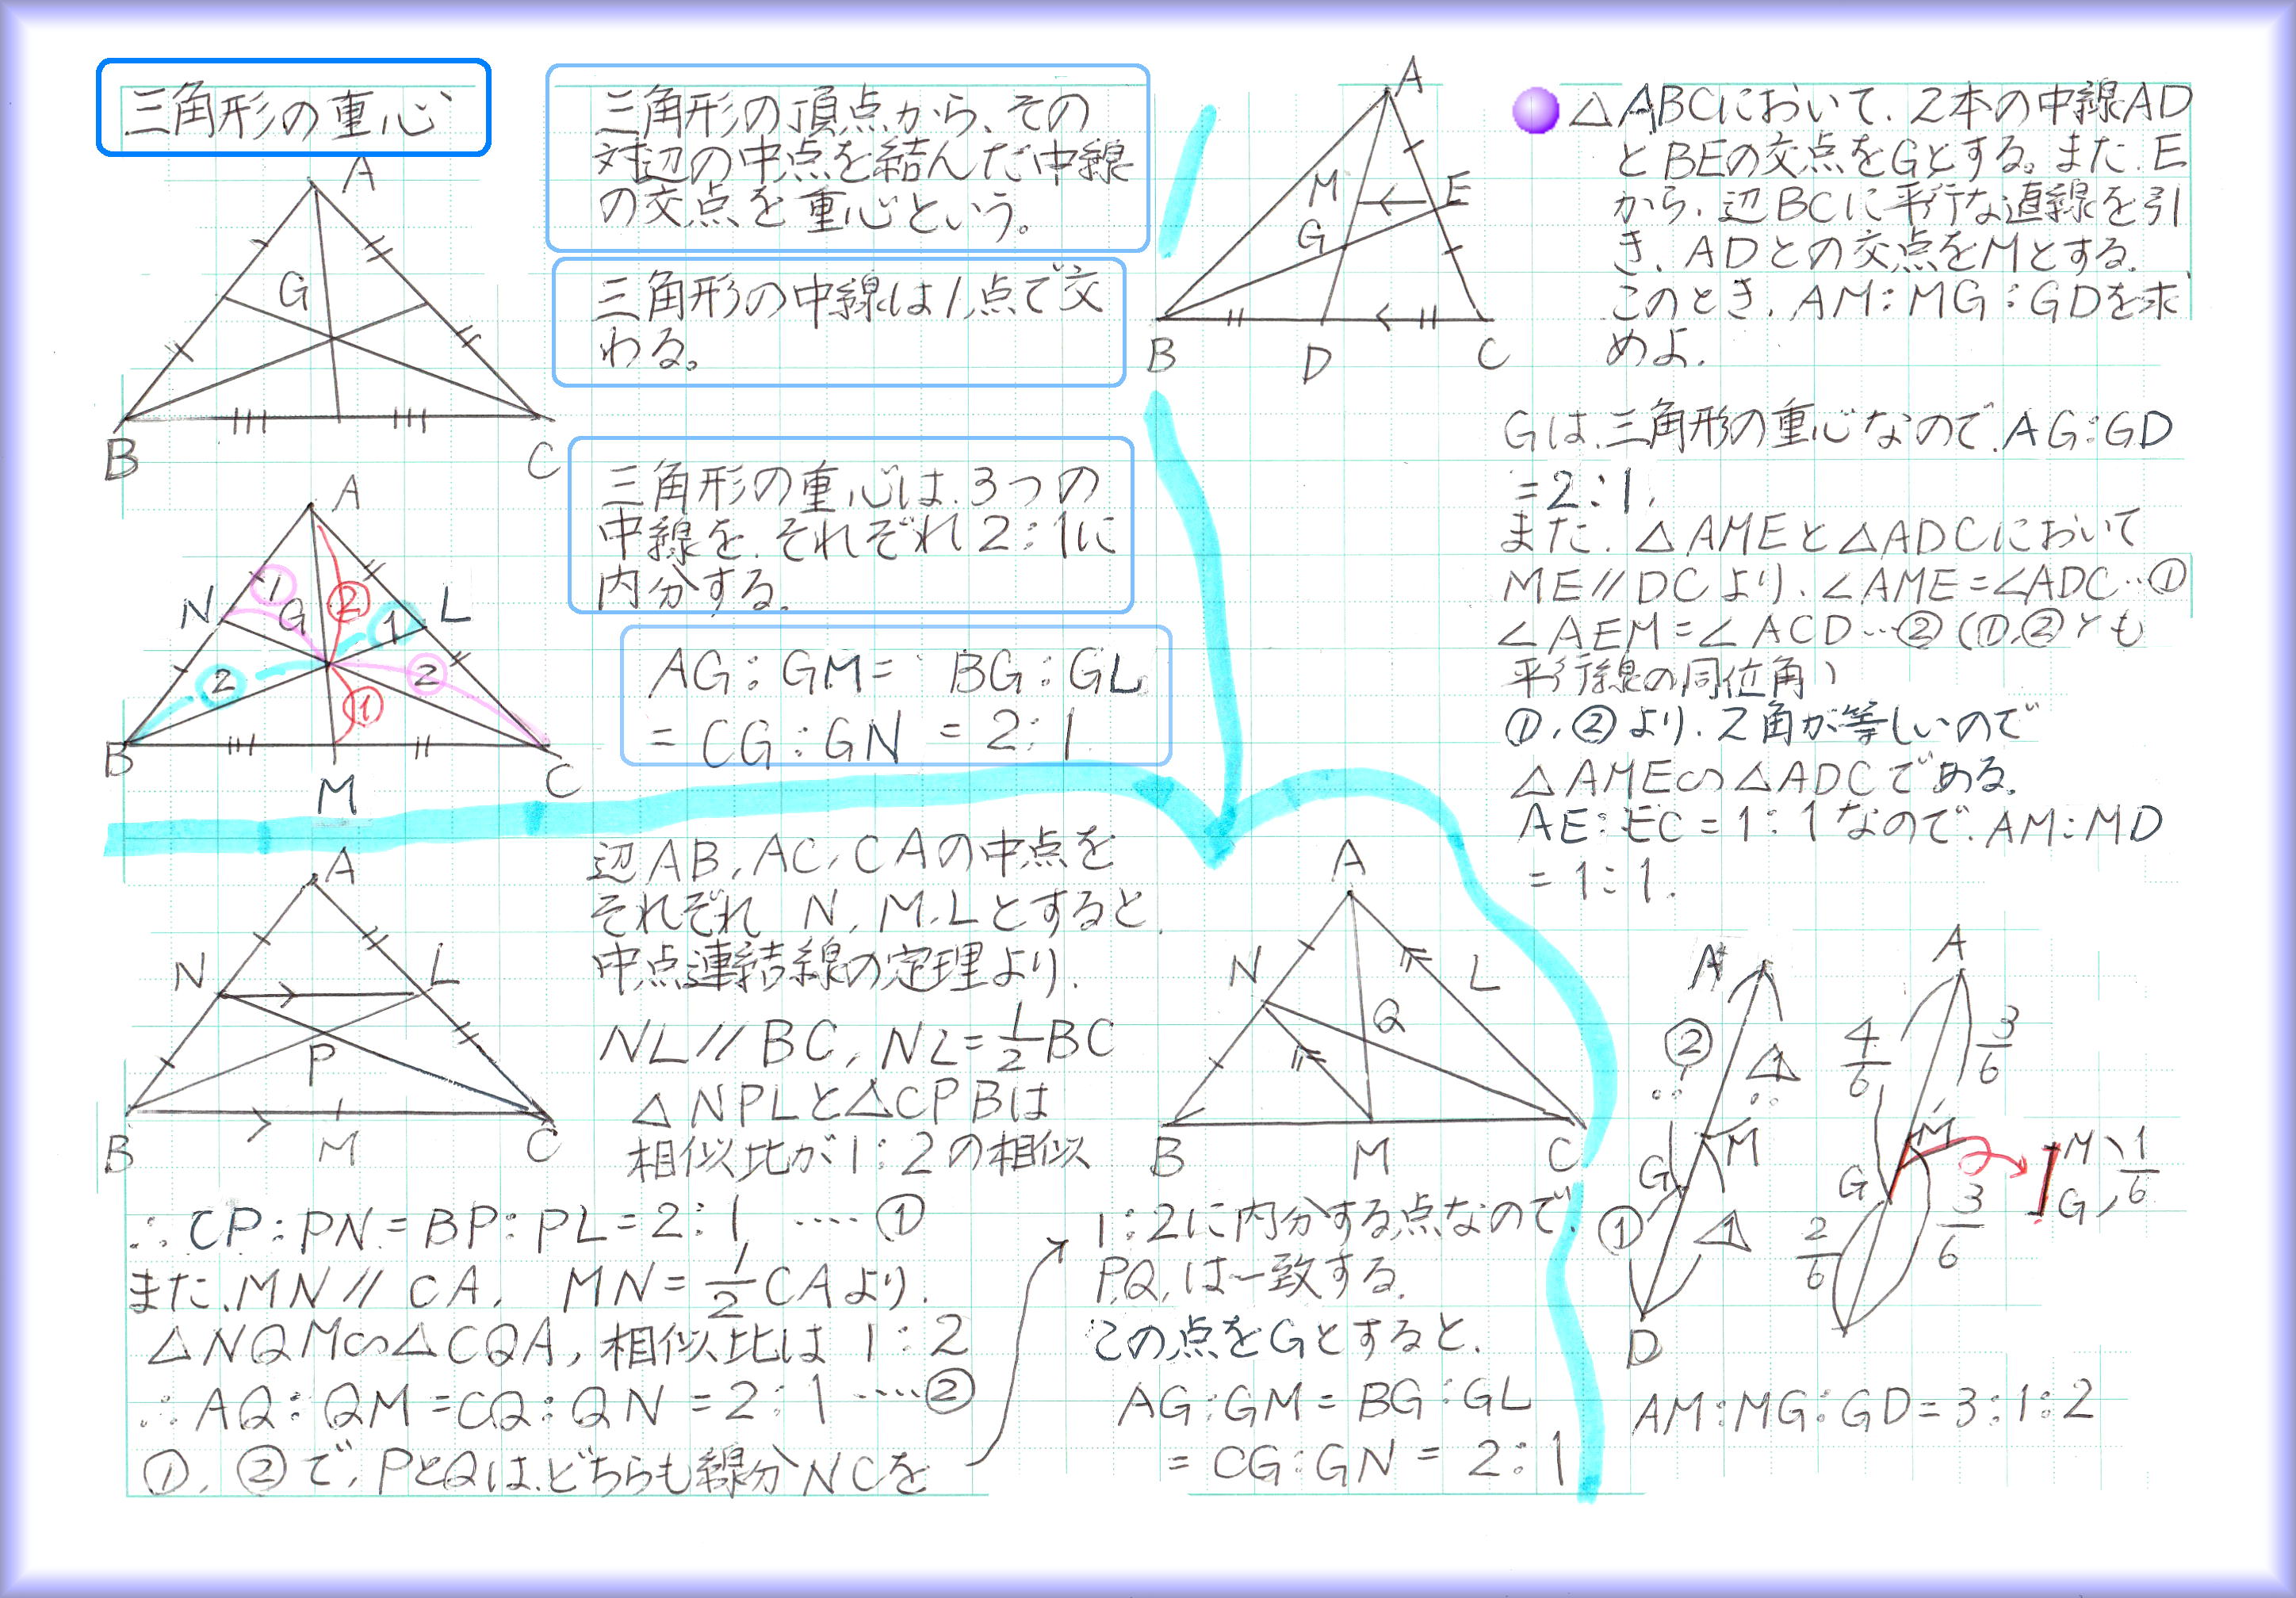 三角形の重心
A
G
B
C
三角形の頂点から、その
対辺の中点を結んだ中線
の交点を重心という。
三角形の中線は1点で交
わる。
A
N
①
G
②
1
L
2
②
①
B
M
C
三角形の重心は、3つの
中線を、それぞれ2:1に
内分する。
AG:GM= BG:GL
= CG:GN = 2:1
A
N
L
P
B
M
C
辺AB,AC,CAの中点を
それぞれ N,M,Lとすると、
中点連結線の定理より、
NL//BC, NL=1/2BC
△NPLと△CPBは
相似比が1:2の相似
∴CP:PN=BP:PL=2:1 ‥‥①
また、MN//CA, MN=1/2CAより、
△NQM∽△CQA, 相似比は 1:2
∴AQ:QM=CQ:QN=2:1 ‥‥②
①,②で、PとQは、どちらも線分NCを
A
N
L
Q
B
M
C
1:2に内分する点なので、
P,Q,は一致する。
この点をGとすると、
AG:GM=BG:GL
= CG:GN = 2:1
A
M
E
G
B
D
C
△ABCにおいて、2本の中線AD
とBEの交点をGとする。また、E
から、辺BCに平行な直線を引
き、ADとの交点をMとする。
このとき、AM:MG:GDを求
めよ。
Gは、三角形の重心なので、AG:GD
=2:1,
また、△AMEと△ADCにおいて
ME//DCより、∠AME=∠ADC‥①
∠AEM=∠ACD‥②(①,②とも
平行線の同位角)
①,②より、2角が等しいので
△AME∽△ADCである。
AE:EC=1:1なので、AM:MD
=1:1.
A
②
1
M
G
①
1
D
A
4/6
3/6
M
G
3/6
2/6
M
G
1/6
AM:MG:GD=3:1:2